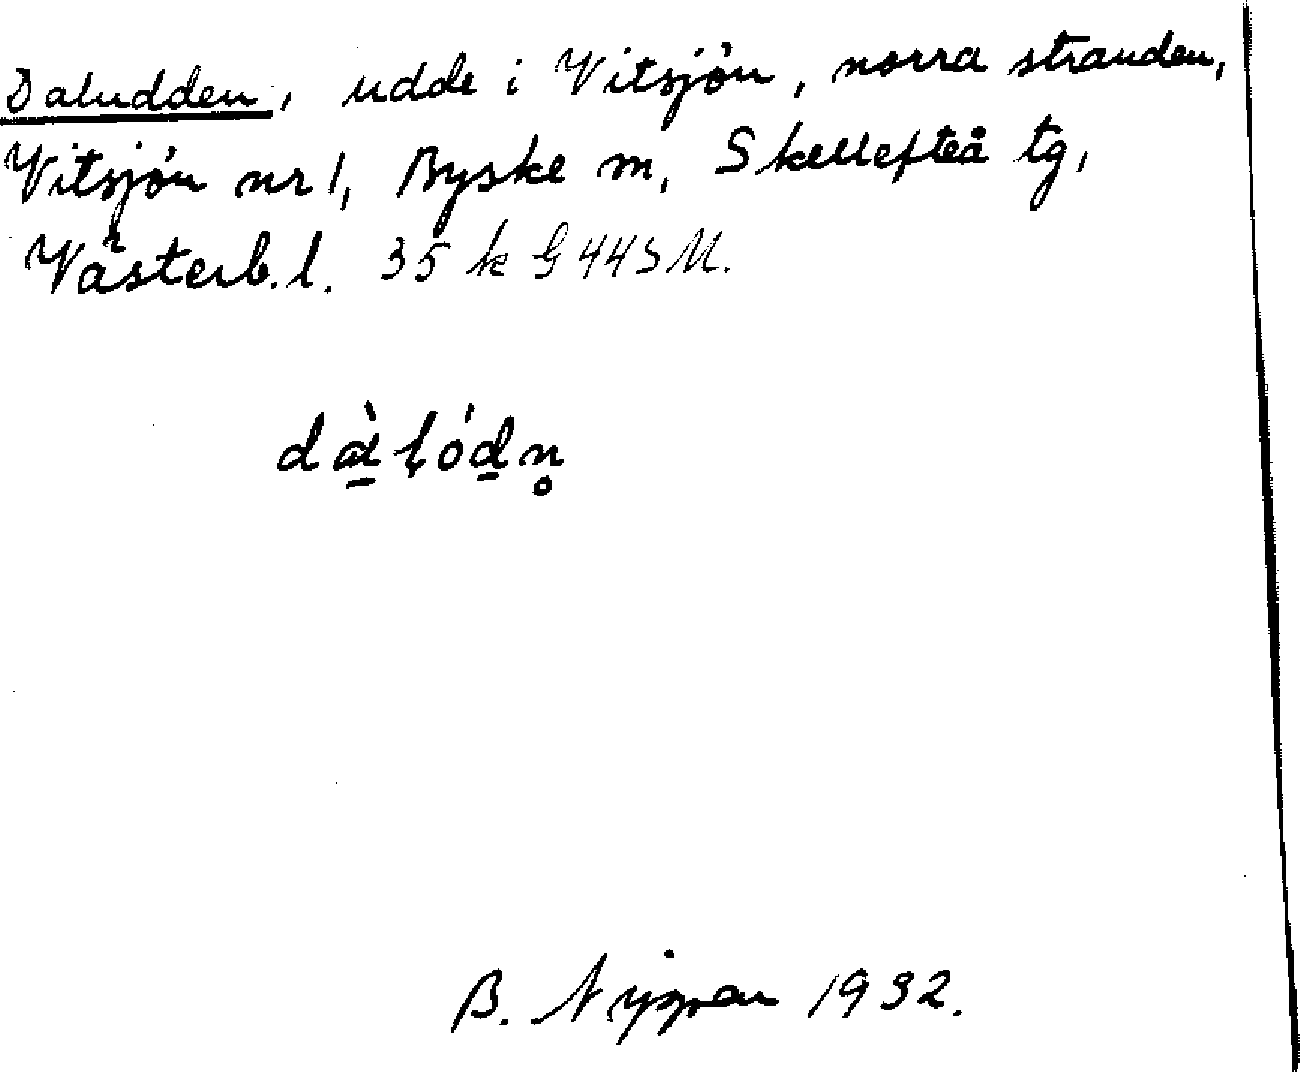 Daludden, udde i Vitsjön, norra stranden,
Vitsjön nr 1, Byske sn, Skellefteå tg,
Västerb. l. 35 k G 443 M.
dàlódn̥
B. Nygren 1932.